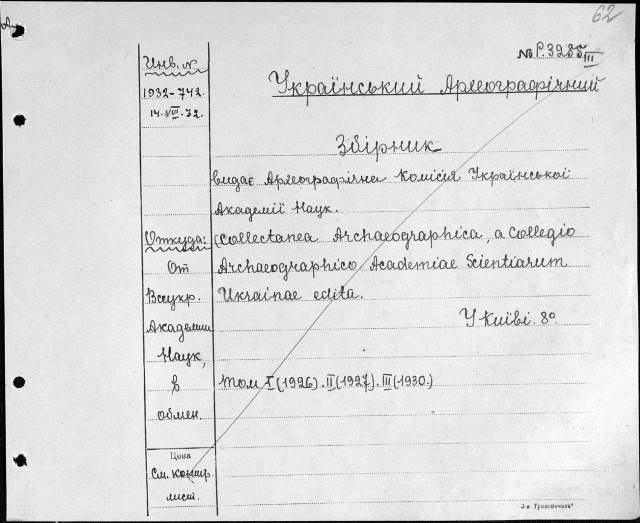 62
№ Р. 3255 III
Инв. №
1932-742.
14. VIII. 32.
Український Археографічний
Збірник
видає Археографічна Комісія Української
Академії Наук.
Откуда:
(Collectanea Archaeographica, a Collegio
От
Archaeographico Academiae Scientiarum
Всеукр.
Ukrainae edita.
Академии
У Київі. 8º.
Наук,
в
Том I (1926). II (1927). III (1930.)
обмен.
Цена
См. контр.
лист.